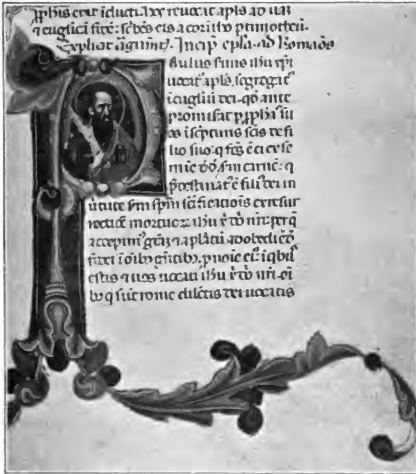 pphis erat iducti. hos reuocat apls ad uerā
& euglicā fidē: scribēs eis a corītho p timotheū.
Explicit argumtū. Incip epla. ad Romāos
Paulus seruus ihu xpi
uocatꝰ apls. segregatꝰ
i euglium dei. qd ante
promiserat p pphās su
os i scripturis scis de fi
lio suo: q fcs ē ei ex se
mie dd, scdm carnē: q
pdestinatꝰ ē filiꝰ dei in
uirtute scdm spm scificatiōis ex resur
rectiōe mortuoꝝ ihu x dni nri: p quē
accepimꝰ grāz & aplatū ad obediēdū
fidei i oībꝰ gētibꝰ, p noīe eiꝰ: i qbꝰ
estis & uos uocati ihu x dni nri. oī
bꝰ q sūt rome dilectis dei uocatis